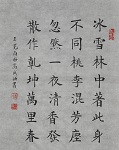 冰雪林中著此身
不同桃李混芳塵
忽然一夜清香發
散作乾坤萬里春